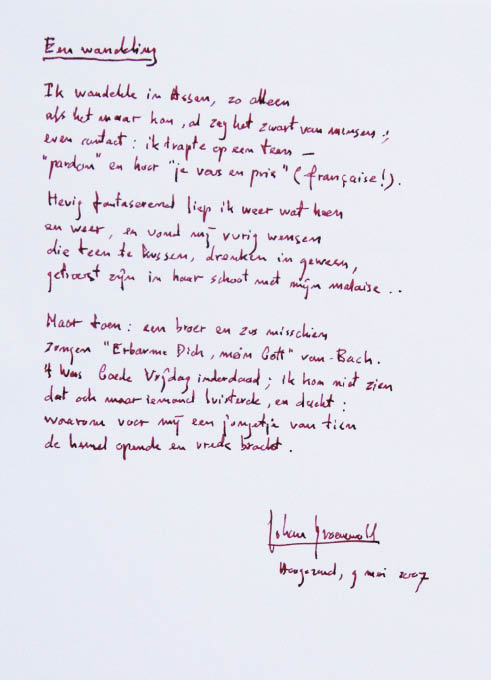 Een wandeling
Ik wandelde in Assen, zo alleen
als het maar kon, al zag het zwart van mensen;
even contact: ik trapte op een teen –
"pardon" en hoor "je vous en prie" (française!).
Hevig fantaserend liep ik weer wat heen
en weer, en vond mij vurig wensen
die teen te kussen, dronken in geween,
getroost zijn in haar schoot met mijn malaise..
Maar toen: een broer en zus misschien
zongen "Erbarme Dich, mein Gott" van Bach.
't Was Goede Vrijdag inderdaad; ik kon niet zien
dat ook maar iemand luisterde, en dacht:
waarom voor mij een jongetje van tien
de hemel opende en vrede bracht.
Johan
Hoogezand, 9 mei 2007